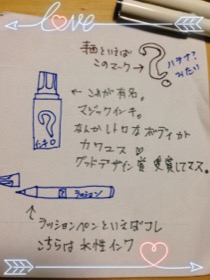 Love
といえば
このマーク→
ハテナ?
みたい
?
← これが有名。
マジックインキ。
なんかレトロなボディがト
カワユス♡
グッドデザイン賞 受賞してマス。
?
インキ
ラッション
↑
ラッションペンといえばコレ
こちらは水性インク